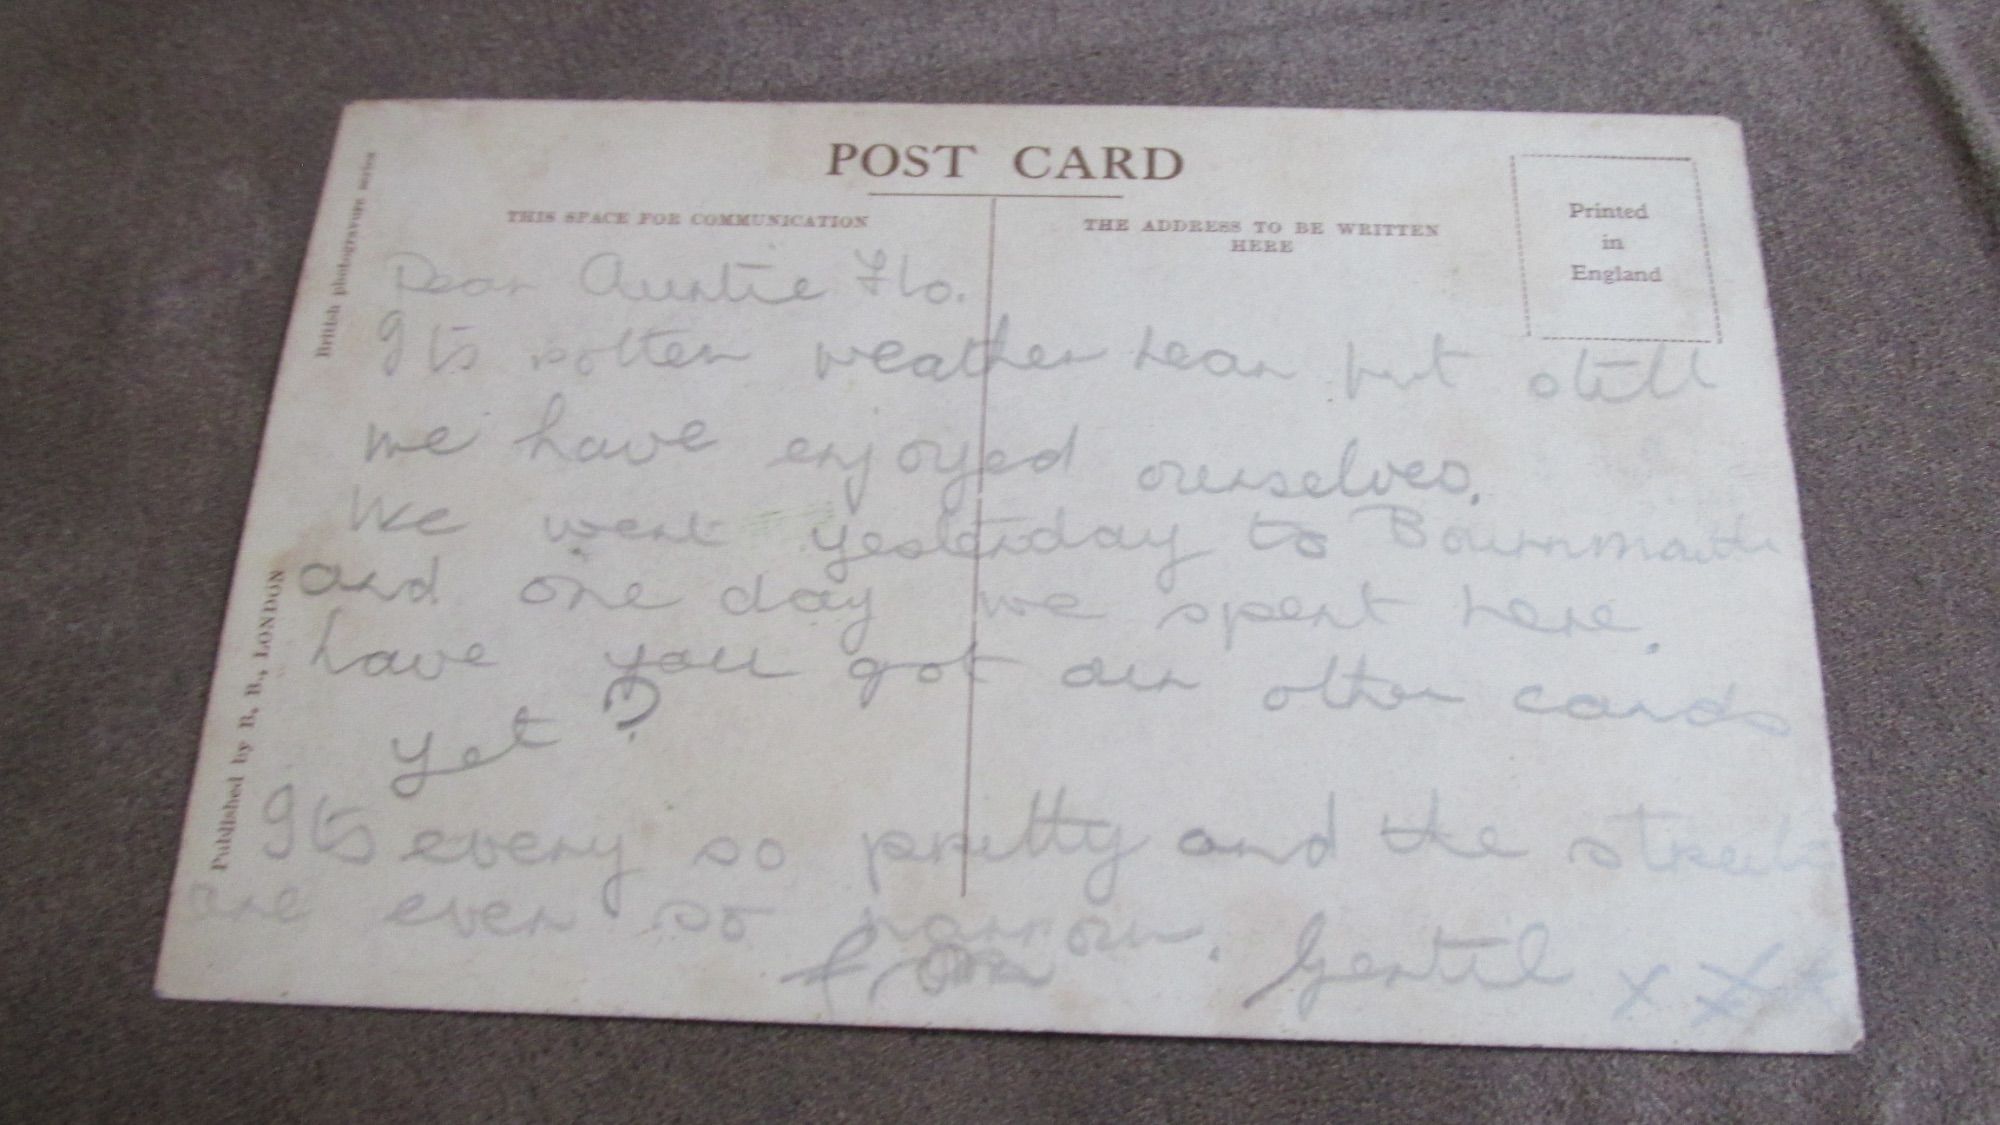 POST CARD
THIS SPACE FOR COMMUNICATION
THE ADDRESS TO BE WRITTEN
HERE
Printed
in
England
British photogravure series
Published by B. B., LONDON
Dear Auntie Flo.
Its rotten weather hear but still
we have enjoyed ourselves.
We went yesterday to Bournmouth
and one day we spent here.
have you got our other cards
yet ?
Its every so pretty and the streets
are ever so narrow.
from x x x x